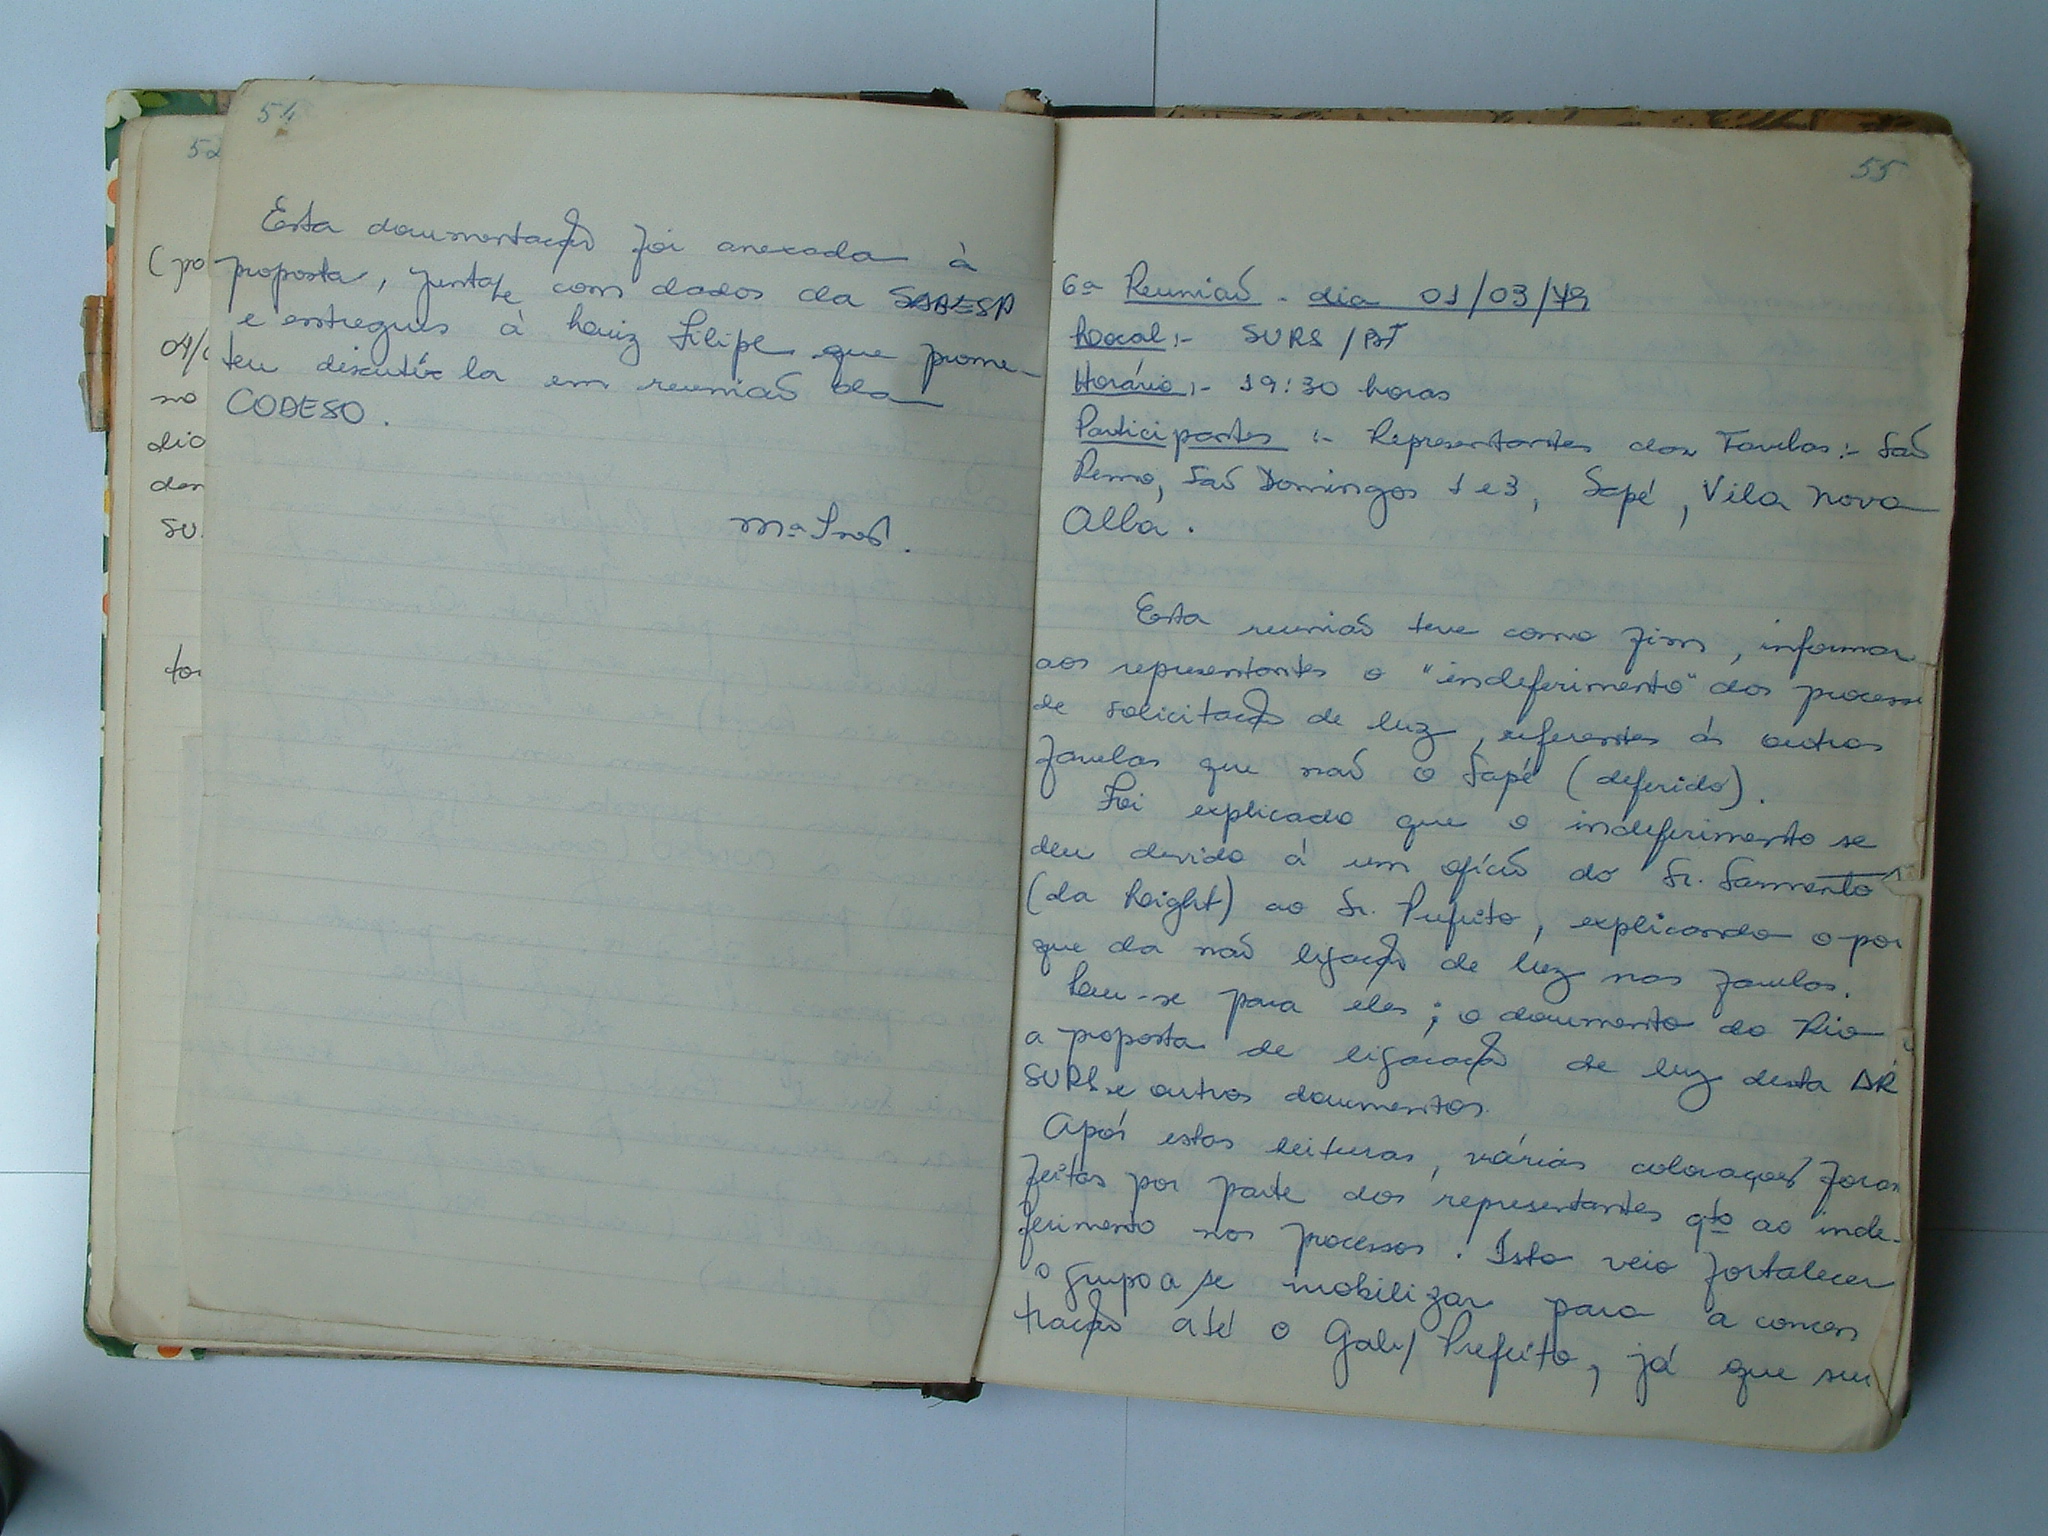 54
Esta documentação foi anexada à
proposta, junta/e com dados da SABESP
e entregues à Luiz Filipe que prome-
teu discutí-la em reunião da
CODESO.
Mª Inês.
52
(po
no
dia
den
SU.
55
6ª Reunião - dia 01/03/79
Local:- SURS/BT
Horário:- 19:30 horas
Participantes:- Representantes das Favelas:- São
Remo, São Domingos 1 e 3, Sapé, Vila Nova
Alba.
Esta reunião teve como fim, informar
aos representantes o "indeferimento" dos processos
de solicitação de luz, referentes às outras
favelas que não o Sapé (deferido).
Foi explicado que o indeferimento se
deu devido à um ofício do Sr. Sarmento
(da Leight) ao Sr. Prefeito, explicando o por
que da não ligação de luz nas favelas.
Leu-se para eles; o documento do Rio
a proposta de ligacação de luz desta AR
SURS e outros documentos.
Após estas leituras, várias colocações foram
feitas por parte dos representantes qto ao inde-
ferimento nos processos. Isto veio fortalecer
o grupo a se mobilizar para a concen
tração até o Gab/Prefeito, já que seu